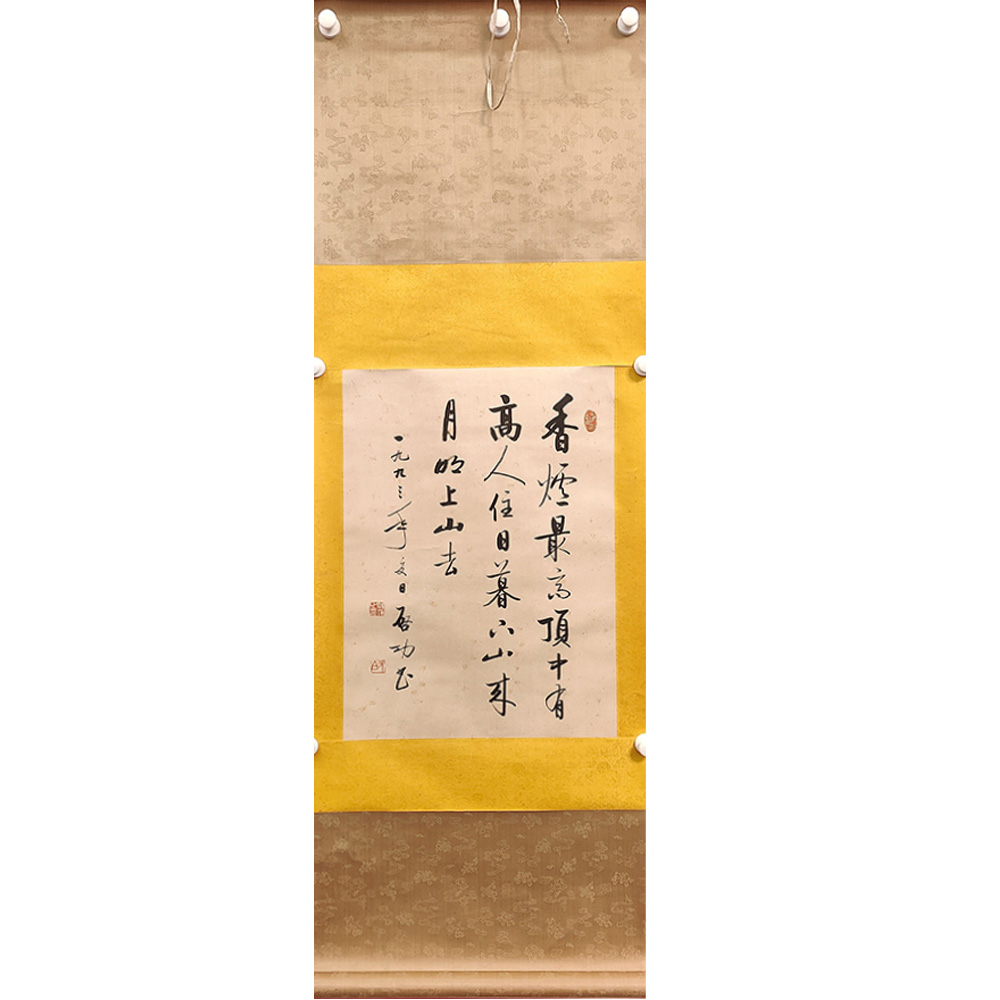 香煙最高頂中有
高人住日暮下山來
月明上山去
一九九三年夏日啟功書